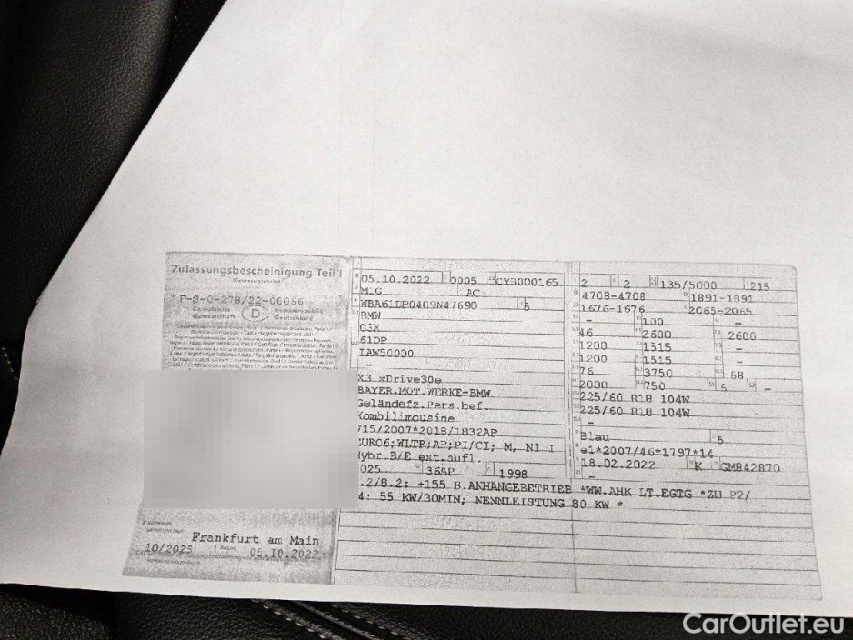 Zulassungsbescheinigung Teil I
F-8-0-278/22-00066
Europäische Gemeinschaft D Bundesrepublik Deutschland
Frankfurt am Main
10/2025 05.10.2022
05.10.2022 0005 CYB000165
M1G AC
WBA61DP0409N47690 5
BMW
G3X
61DP
IAW50000
X3 xDrive30e
BAYER.MOT.WERKE-BMW
Geländefz.Pers.bef.
Kombilimousine
715/2007*2018/1832AP
EURO6;WLTP;AP;PI/CI; M, N1 I
Hybr.B/E ext.aufl.
025 36AP 1998
.2/8.2: +155 B.ANHÄNGEBETRIEB *WW.AHK LT.EGTG *ZU P2/
4: 55 KW/30MIN; NENNLEISTUNG 80 KW *
2 2 135/5000 215
4708-4708 1891-1891
1676-1676 2065-2065
- 100 -
46 2600 2600
1200 1515 -
1200 1515 -
76 3750 68
2000 750 5 -
225/60 R18 104W
225/60 R18 104W
-
Blau 5
e1*2007/46*1797*14
18.02.2022 K GM842870
-
CarOutlet.eu